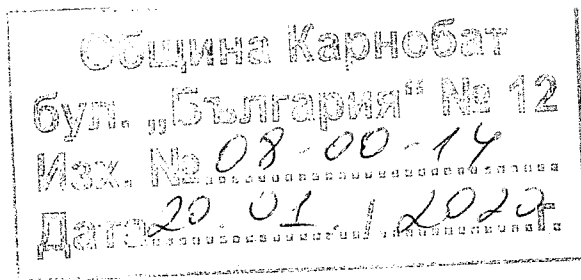 Община Карнобат
бул. „България“ № 12
Изх. № 08-00-14
Дата 20.01./2020г.